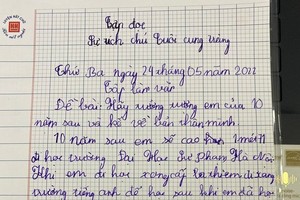 Tập đọc
Sự tích chú Cuội cung trăng
Thứ Ba ngày 24 tháng 05 năm 2022
Tập làm văn
Đề bài: Hãy tưởng tượng em của 10
năm sau và kể về bản thân mình
10 năm sau em sẽ cao 1 mét 71
đi học trường Đại Học Sư phạm Hà Nội
Khi em đi học xong cấp
anh để học sau khi em đã học